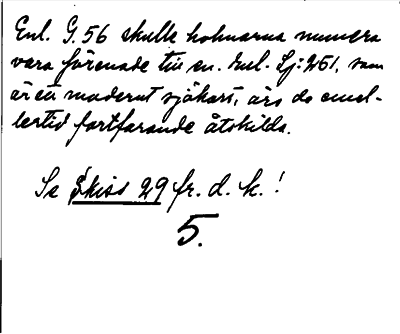 Enl. G. 56 skulle holmarna numera
vara förenade till en. Enl. Sj: 251, som
är ett modernt sjökort, äro de emel-
lertid fortfarande åtskilda.
Se Skiss 29 fr. d. k.!
5.